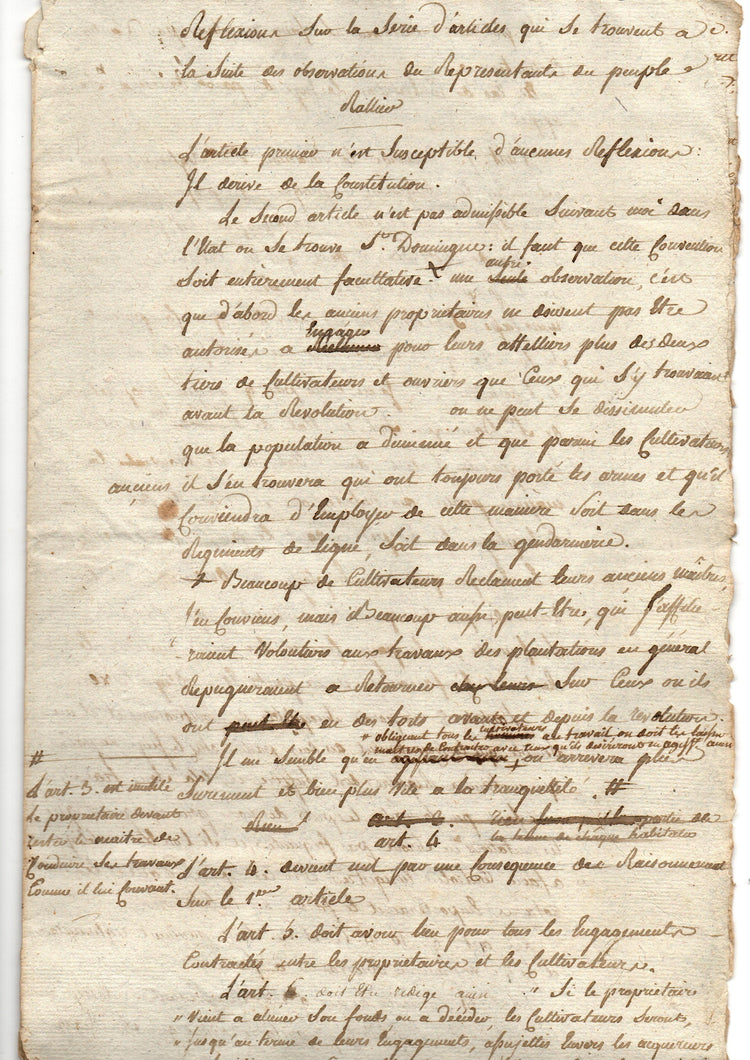 Reflexions Sur la Serie d'articles qui se trouvent a
la Suite des observations du Representants du peuple
Rallier
L'article premier n'est Susceptible d'aucunes Reflexions:
Il derive de la Constitution.
Le Second article n'est pas admissible Suivant moi dans
l'Etat ou Se trouve St. Domingue: il faut que cette Convention
Soit entièrement facultative. une aussi Seule observation, c'est
que d'abord les anciens proprietaires ne doivent pas Etre
autorisés a Engager pour leurs attelliers plus des deux
tiers de Cultivateurs et ouvriers que Ceux qui S'y trouvaient
avant la Revolution. on ne peut se dissimuler
que la population a diminué et que parmi les Cultivateurs
anciens il S'en trouvera qui ont toujours porté les armes et qu'il
Conviendra d'Employer de cette manière Soit dans les
Regiments de ligne, Soit dans la gendarmerie.
+ Beaucoup de Cultivateurs Reclament leurs anciens maîtres,
j'en Conviens, mais Beaucoup aussi peut-Etre, qui
Volontiers aux travaux des plantations en général
Repugneraient a Retourner chez leurs Sur Ceux ou ils
ont peut Etre eu des torts avant et depuis la revolution.
obligeant tous les cultivateurs au travail, on doit les laisser
maitres de Contracter avec Ceux qu'ils desireront
Il me Semble qu'en on arrivera plus
Surement et bien plus Vite a la tranquillité. #
#
L'art. 3. est inutile
le proprietaire devant
rester le maitre de
Conduire Ses travaux
Comme il lui Convient.
art. 4
L'art. 4. devient nul par une Consequence des Raisonnement
Sur le 1er article
L'art. 5. doit avoir lieu pour tous les Engagements
Contractés entre les proprietaires et les Cultivateurs.
L'art. 6. doit Etre redigé ainsi " Si le proprietaire
" Vient a aliener Son fonds ou a décéder les Cultivateurs Seront,
" Jusqu'au terme de leurs Engagements, assujettis Envers les acquereurs